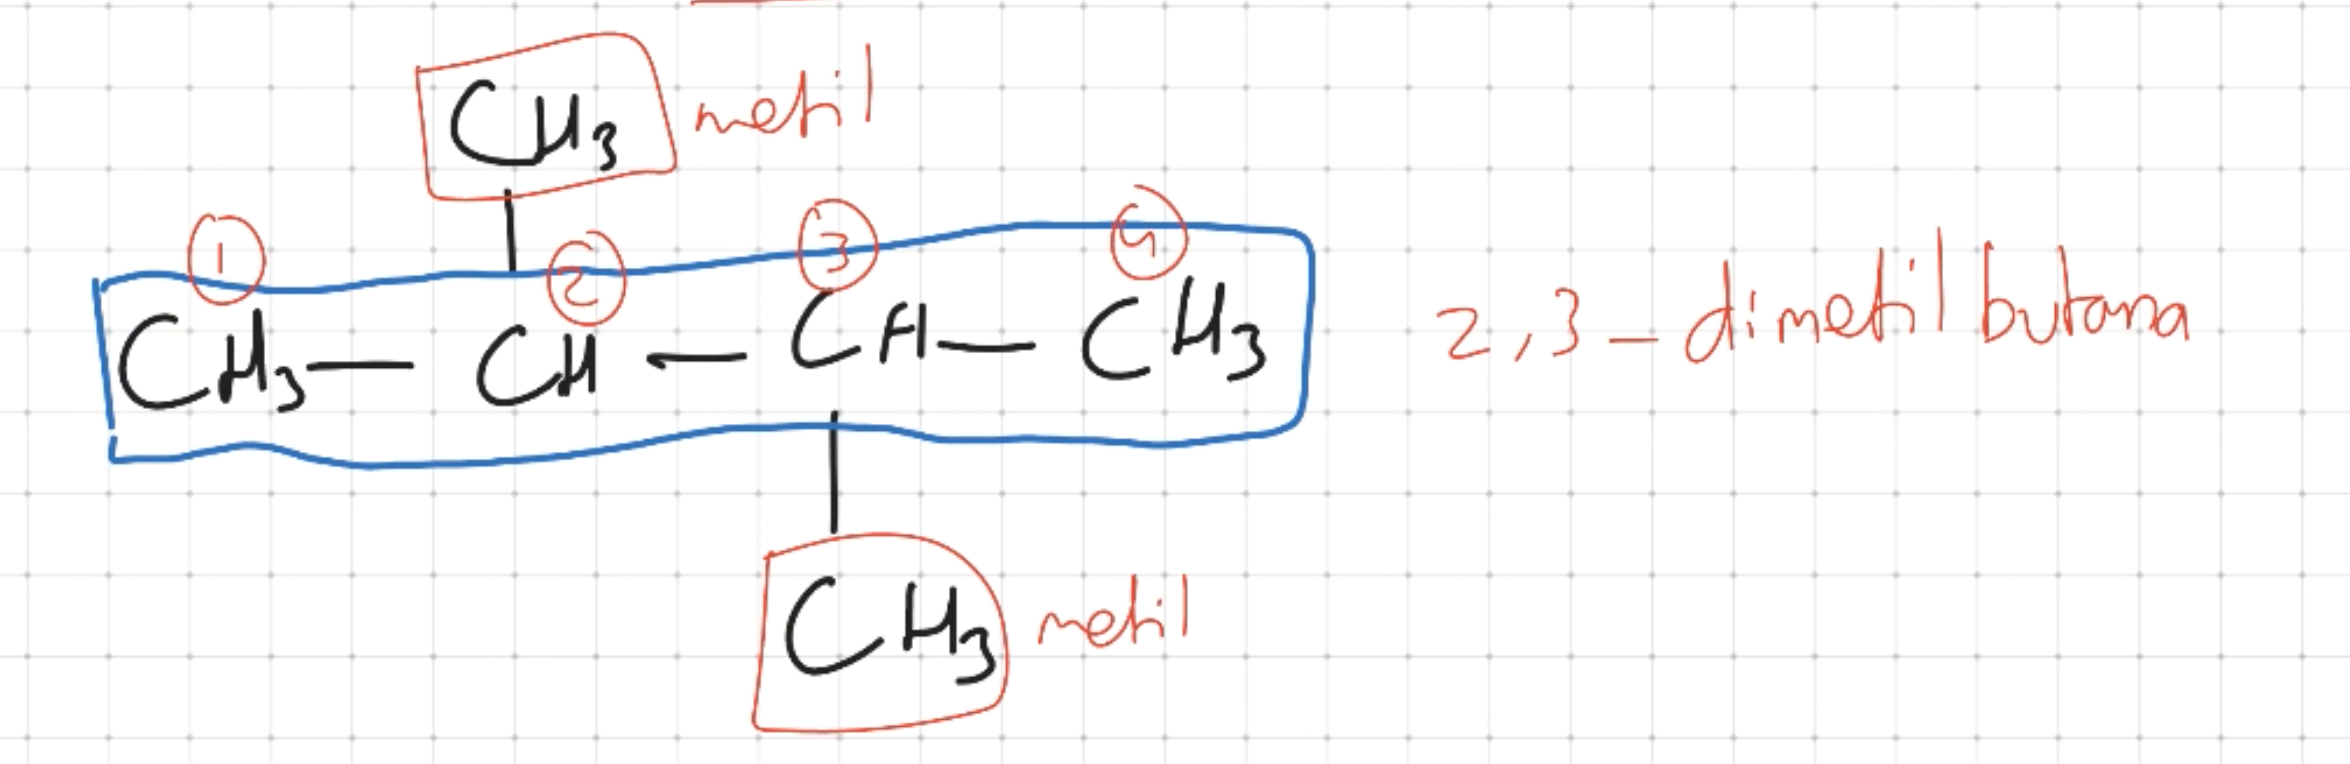 CH3 metil
① ② ③ ④
CH3 — CH — CH — CH3 2,3 - dimetil butana
CH3 metil